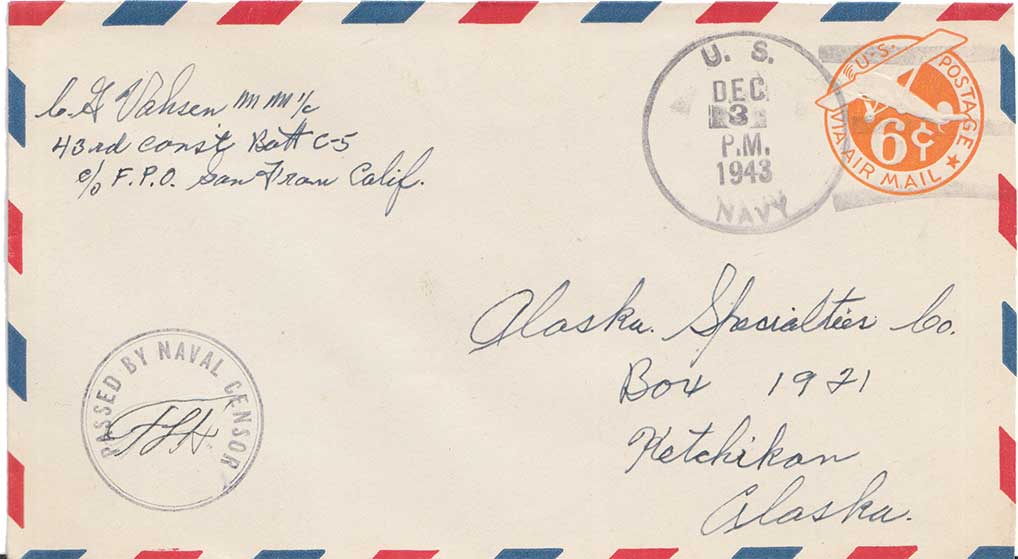 C. G. Vahsen MM 1/c
43rd Const Batt C-5
c/o F.P.O. San Fran Calif.
U. S.
DEC
3
P.M.
1943
NAVY
U.S. POSTAGE
6¢
VIA AIR MAIL
Alaska Specialties Co.
Box 1921
Ketchikan
Alaska.
PASSED BY NAVAL CENSOR